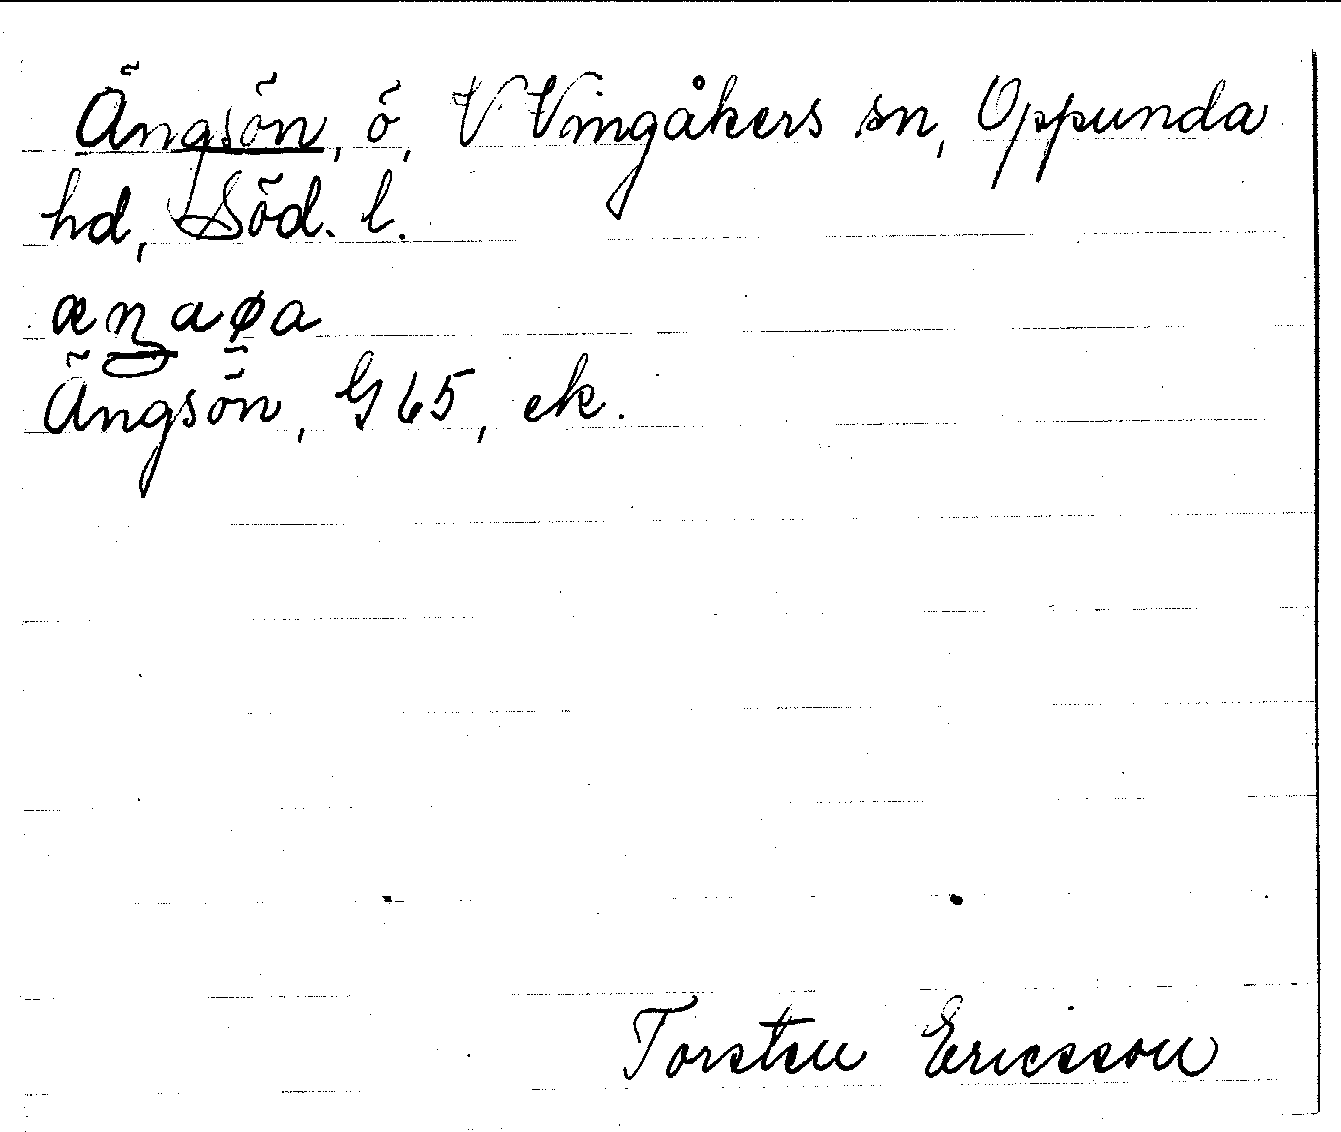 Ängsön, ö, V Vingåkers sn, Oppunda
hd, Söd. l.
æŋaøa
Ängsön, G 65, ek.
Torsten Ericsson